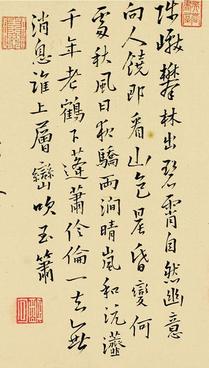 陟巘攀林出碧霄自然幽意
向人饒即看山色晨昏變何
處秋風日夜驕雨澗晴嵐和沆瀣
千年老鶴下蓬蕭伶倫一去無
消息誰上層巒吹玉簫